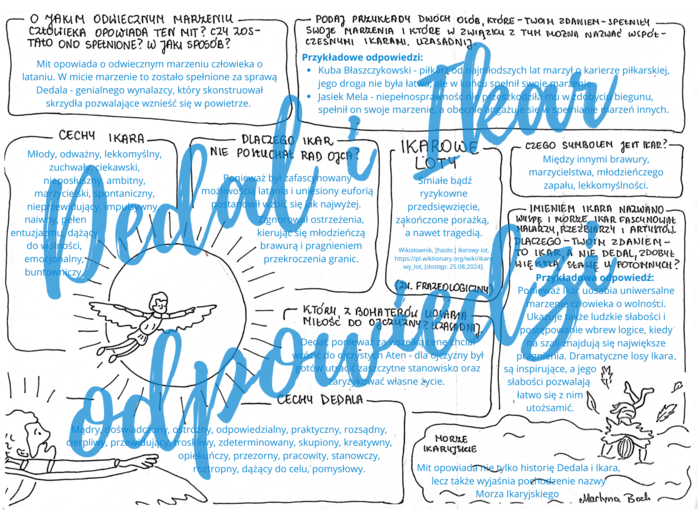 O JAKIM ODWIECZNYM MARZENIU
CZŁOWIEKA OPOWIADA TEN MIT? CZY ZOS-
TAŁO ONO SPEŁNIONE? W JAKI SPOSÓB?
Mit opowiada o odwiecznym marzeniu człowieka o
lataniu. W micie marzenie to zostało spełnione za sprawą
Dedala - genialnego wynalazcy, który skonstruował
skrzydła pozwalające wznieść się w powietrze.
PODAJ PRZYKŁADY DWÓCH OSÓB, KTÓRE - TWOIM ZDANIEM - SPEŁNIŁY
SWOJE MARZENIA I KTÓRE W ZWIĄZKU Z TYM MOŻNA NAZWAĆ WSPÓŁ-
CZESNYMI IKARAMI. UZASADNIJ.
Przykładowe odpowiedzi:
Kuba Błaszczykowski - piłkarz, od najmłodszych lat marzył o karierze piłkarskiej,
jego droga nie była łatwa, ale w końcu spełnił swoje marzenie.
Jasiek Mela - niepełnosprawność nie przeszkodziła mu w zdobyciu biegunu,
spełnił on swoje marzenie, a obecnie angażuje się w spełnianie marzeń innych.
Dedal i Ikar
odpowiedzi
CECHY IKARA
Młody, odważny, lekkomyślny,
zuchwały, ciekawski,
nieposłuszny, ambitny,
marzycielski, spontaniczny,
nieprzewidujący, impulsywny,
naiwny, pełen
entuzjazmu, dążący
do wolności,
emocjonalny,
buntowniczy.
DLACZEGO IKAR
NIE POSŁUCHAŁ RAD OJCA?
Ponieważ był zafascynowany
możliwością latania i uniesiony euforią
postanowił wzbić się jak najwyżej.
Zignorował ostrzeżenia,
kierując się młodzieńczą
brawurą i pragnieniem
przekroczenia granic.
IKAROWE
LOTY
Śmiałe bądź
ryzykowne
przedsięwzięcie,
zakończone porażką,
a nawet tragedią.
Wikisłownik, [hasło:] ikarowy lot,
https://pl.wiktionary.org/wiki/ikaro
wy_lot, [dostęp: 25.08.2024].
(ZW. FRAZEOLOGICZNY)
CZEGO SYMBOLEM JEST IKAR?
Między innymi brawury,
marzycielstwa, młodzieńczego
zapału, lekkomyślności.
IMIENIEM IKARA NAZWANO
WYSPĘ I MORZE. IKAR FASCYNOWAŁ
MALARZY, RZEŹBIARZY I ARTYSTÓW.
DLACZEGO - TWOIM ZDANIEM -
TO IKAR, A NIE DEDAL, ZDOBYŁ
WIĘKSZĄ SŁAWĘ U POTOMNYCH?
Przykładowa odpowiedź:
Ponieważ Ikar uosabia uniwersalne
marzenie człowieka o wolności.
Ukazuje także ludzkie słabości i
postępowanie wbrew logice, kiedy
na szali znajdują się największe
pragnienia. Dramatyczne losy Ikara,
są inspirujące, a jego
słabości pozwalają
łatwo się z nim
utożsamić.
KTÓRY Z BOHATERÓW USŁABIA
MIŁOŚĆ DO OJCZYZNY? UZASADNIJ.
Dedal, ponieważ za wszelką cenę chciał
wrócić do ojczystych Aten - dla ojczyzny był
gotów utracić zaszczytne stanowisko oraz
zaryzykować własne życie.
CECHY DEDALA
Mądry, doświadczony, ostrożny, odpowiedzialny, praktyczny, rozsądny,
cierpliwy, przewidujący, troskliwy, zdeterminowany, skupiony, kreatywny,
opiekuńczy, przezorny, pracowity, stanowczy,
roztropny, dążący do celu, pomysłowy.
MORZE
IKARYJSKIE
Mit opowiada nie tylko historię Dedala i Ikara,
lecz także wyjaśnia pochodzenie nazwy
Morza Ikaryjskiego
Martyna Bach